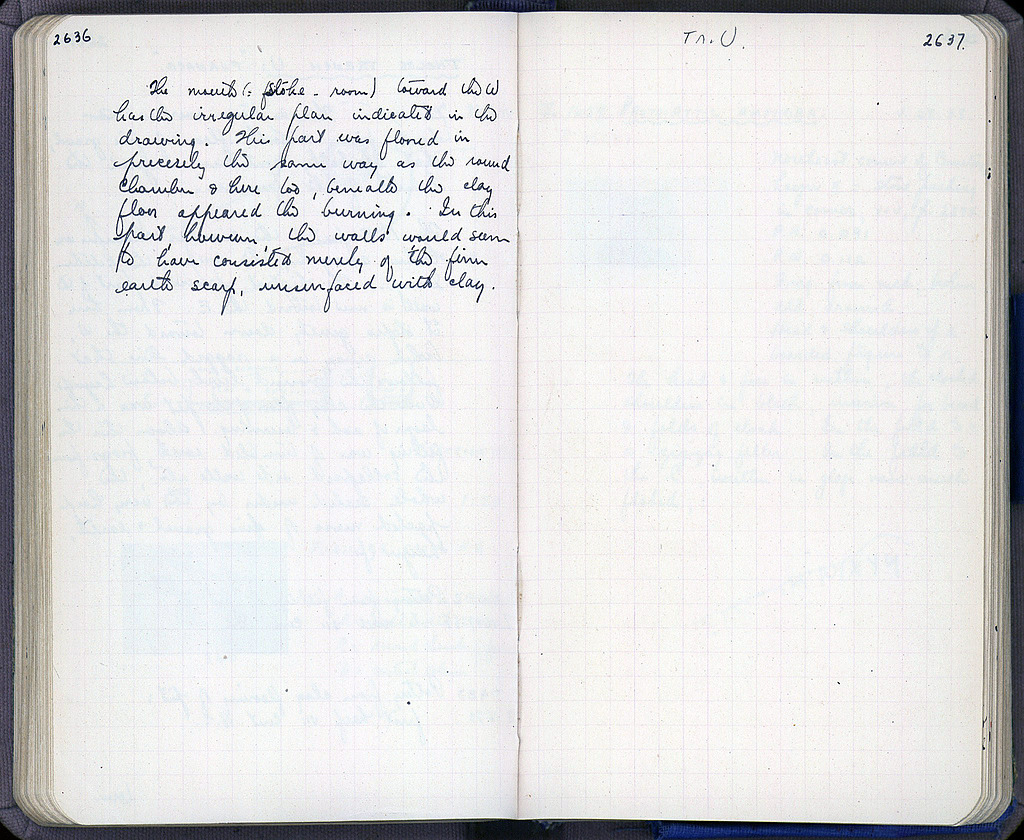 2636
The mouth (: stoke-room) toward the W
has the irregular plan indicated in the
drawing. This part was floored in
precisely the same way as the round
chamber & here too, beneath the clay
floor appeared the burning. In this
part, however, the walls would seem
to have consisted merely of the firm
earth scarp, unsurfaced with clay.
Tr. U.
2637